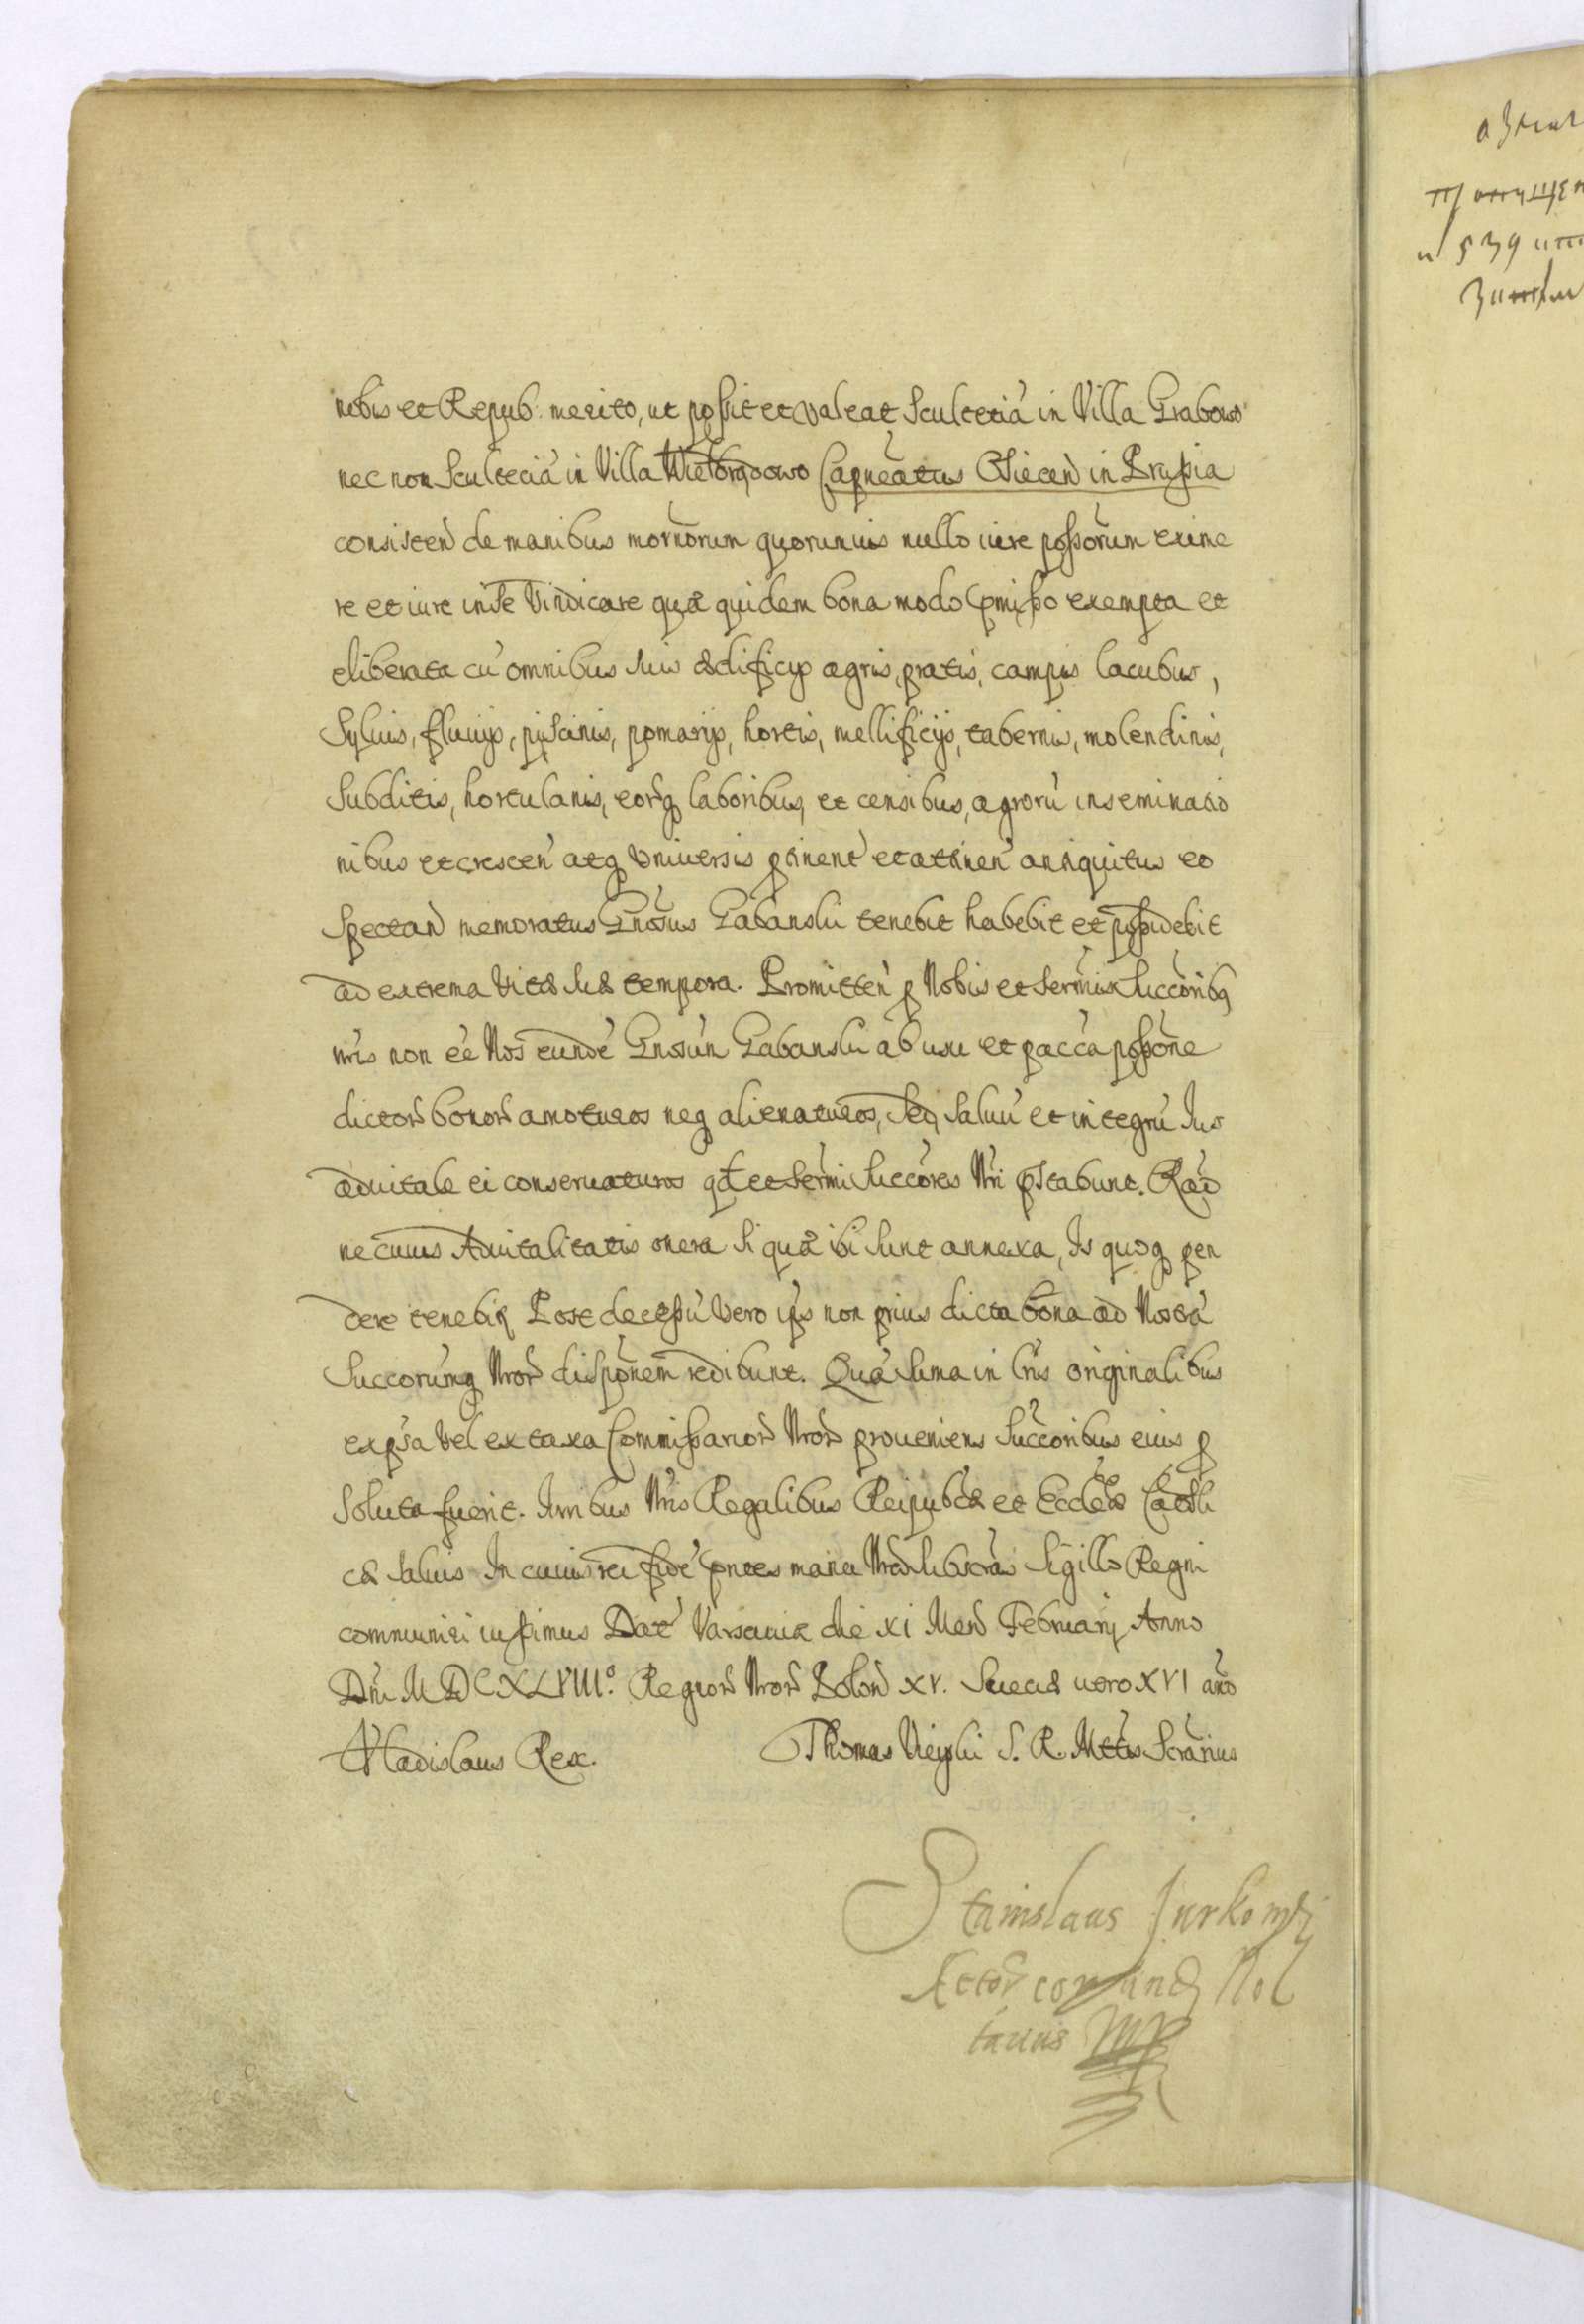 nobis et Repub. merito, ut possit et valeat Scultetiã in Villa Grabowo
nec non Scultetiã in Villa Capneatus Osiecen in Prussia
consisten de manibus mornorum quorumuis nullo iure possorum exime
re et iure in se Vindicare quæ quidem bona modo pmisso exempta et
eliberata cũ omnibus suis ædificijs agris, pratis, campis lacubus,
Syluis, fluuijs, piscinis, pomarijs, hortis, mellificijs, tabernis, molendinis,
Subditis, hortulanis, eorq laboribus, et censibus, agrorũ inseminatio
nibus et crescen atq vniuersis ptinent et attinen antiquitus eo
Spectan memoratus Gnosus Gabanski tenebit habebit et possidebit
ad extrema vitæ suæ tempora. Promitten p Nobis et Sermis Succoribq
nris non eẽ Nos eundẽ Gnosum Gabanski ab usu et paccã possone
dictor bonor amoturos neq alienaturos, Sed Saluũ et integrũ Ius
aduitale ei conseruaturos qd et Sermi Succores Nri pstabunt. Raõ
ne cuius Aduitalitatis onera si quæ ibi sunt annexa, Is quoq pen
dere tenebir Post decessũ vero ips non prius dicta bona ad Nostrã
Succorumq Nror disponem redibunt. Quã Suma in lris originalibus
expsa vel ex taxa Commissarior Nror proueniens Succoribus eius p
Soluta fuerit. Iuribus Nris Regalibus Reipubcæ et Ecclesiæ Catholi
cæ saluis In cuius rei fidẽ pntes manu Nra subscras Sigillo Regni
communiri iussimus Dat Varsauiæ die XI Mens Februarij Anno
Dni MDCXLVIIIº. Regnor Nror Polon XV. Sueciæ uero XVI año
Vladislaus Rex. Thomas Vieyski S. R. Mttis Scrarius
Stanislaus
Actor Not
tarius MP